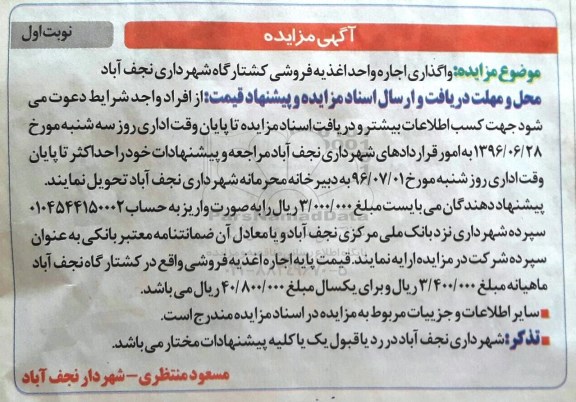 نوبت اول
آگهی مزایده
موضوع مزایده: واگذاری اجاره واحد اغذیه فروشی کشتارگاه شهرداری نجف آباد
محل و مهلت دریافت و ارسال اسناد مزایده و پیشنهاد قیمت: از افراد واجد شرایط دعوت می
شود جهت کسب اطلاعات بیشتر و دریافت اسناد مزایده تا پایان وقت اداری روز سه شنبه مورخ
۱۳۹۶/۰۶/۲۸ به امور قراردادهای شهرداری نجف آباد مراجعه و پیشنهادات خود را حداکثر تا پایان
وقت اداری روز شنبه مورخ ۹۶/۰۷/۰۱ به دبیرخانه محرمانه شهرداری نجف آباد تحویل نمایند.
پیشنهاد دهندگان می بایست مبلغ ۳/۰۰۰/۰۰۰ ریال را به صورت واریز به حساب ۰۱۰۴۵۴۴۱۵۰۰۰۲
سپرده شهرداری نزد بانک ملی مرکزی نجف آباد و یا معادل آن ضمانتنامه معتبر بانکی به عنوان
سپرده شرکت در مزایده ارایه نمایند. قیمت پایه اجاره اغذیه فروشی واقع در کشتارگاه نجف آباد
ماهیانه مبلغ ۳/۴۰۰/۰۰۰ ریال و برای یکسال مبلغ ۴۰/۸۰۰/۰۰۰ ریال می باشد.
سایر اطلاعات و جزییات مربوط به مزایده در اسناد مزایده مندرج است.
تذکر: شهرداری نجف آباد در رد یا قبول یک یا کلیه پیشنهادات مختار می باشد.
مسعود منتظری - شهردار نجف آباد
ParsNamadData